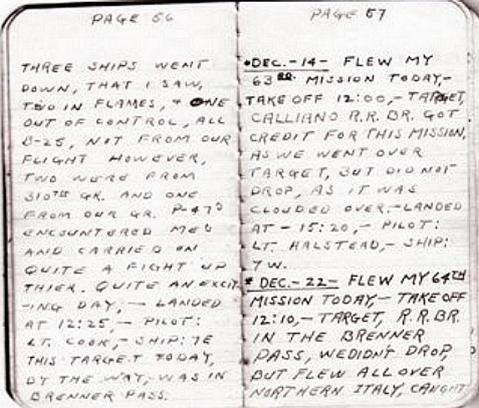 PAGE 56
THREE SHIPS WENT
DOWN, THAT I SAW,
TWO IN FLAMES, + ONE
OUT OF CONTROL, ALL
B-25, NOT FROM OUR
FLIGHT HOWEVER,
TWO WERE FROM
310TH GR. AND ONE
FROM OUR GR. P-47'S
ENCOUNTERED
AND CARRIED ON
QUITE A FIGHT UP
THIER. QUITE AN EXCIT
-ING DAY, - LANDED
AT 12:25, - PILOT:
LT. COOK, - SHIP: 7E
THIS TARGET TODAY,
BY THE WAY, WAS IN
BRENNER PASS.
PAGE 57
* DEC. - 14 - FLEW MY
63RD MISSION TODAY, -
TAKE OFF 12:00, - TARGET,
CALLIANO R.R. BR. GOT
CREDIT FOR THIS MISSION,
AS WE WENT OVER
TARGET, BUT DID NOT
DROP, AS IT WAS
CLOUDED OVER. - LANDED
AT - 15:20, - PILOT:
LT. HALSTEAD, - SHIP:
7W.
* DEC. - 22 - FLEW MY 64TH
MISSION TODAY, - TAKE OFF
12:10, - TARGET, R.R. BR.
IN THE BRENNER
PASS, WE DIDN'T DROP,
BUT FLEW ALL OVER
NORTHERN ITALY, CAUGHT